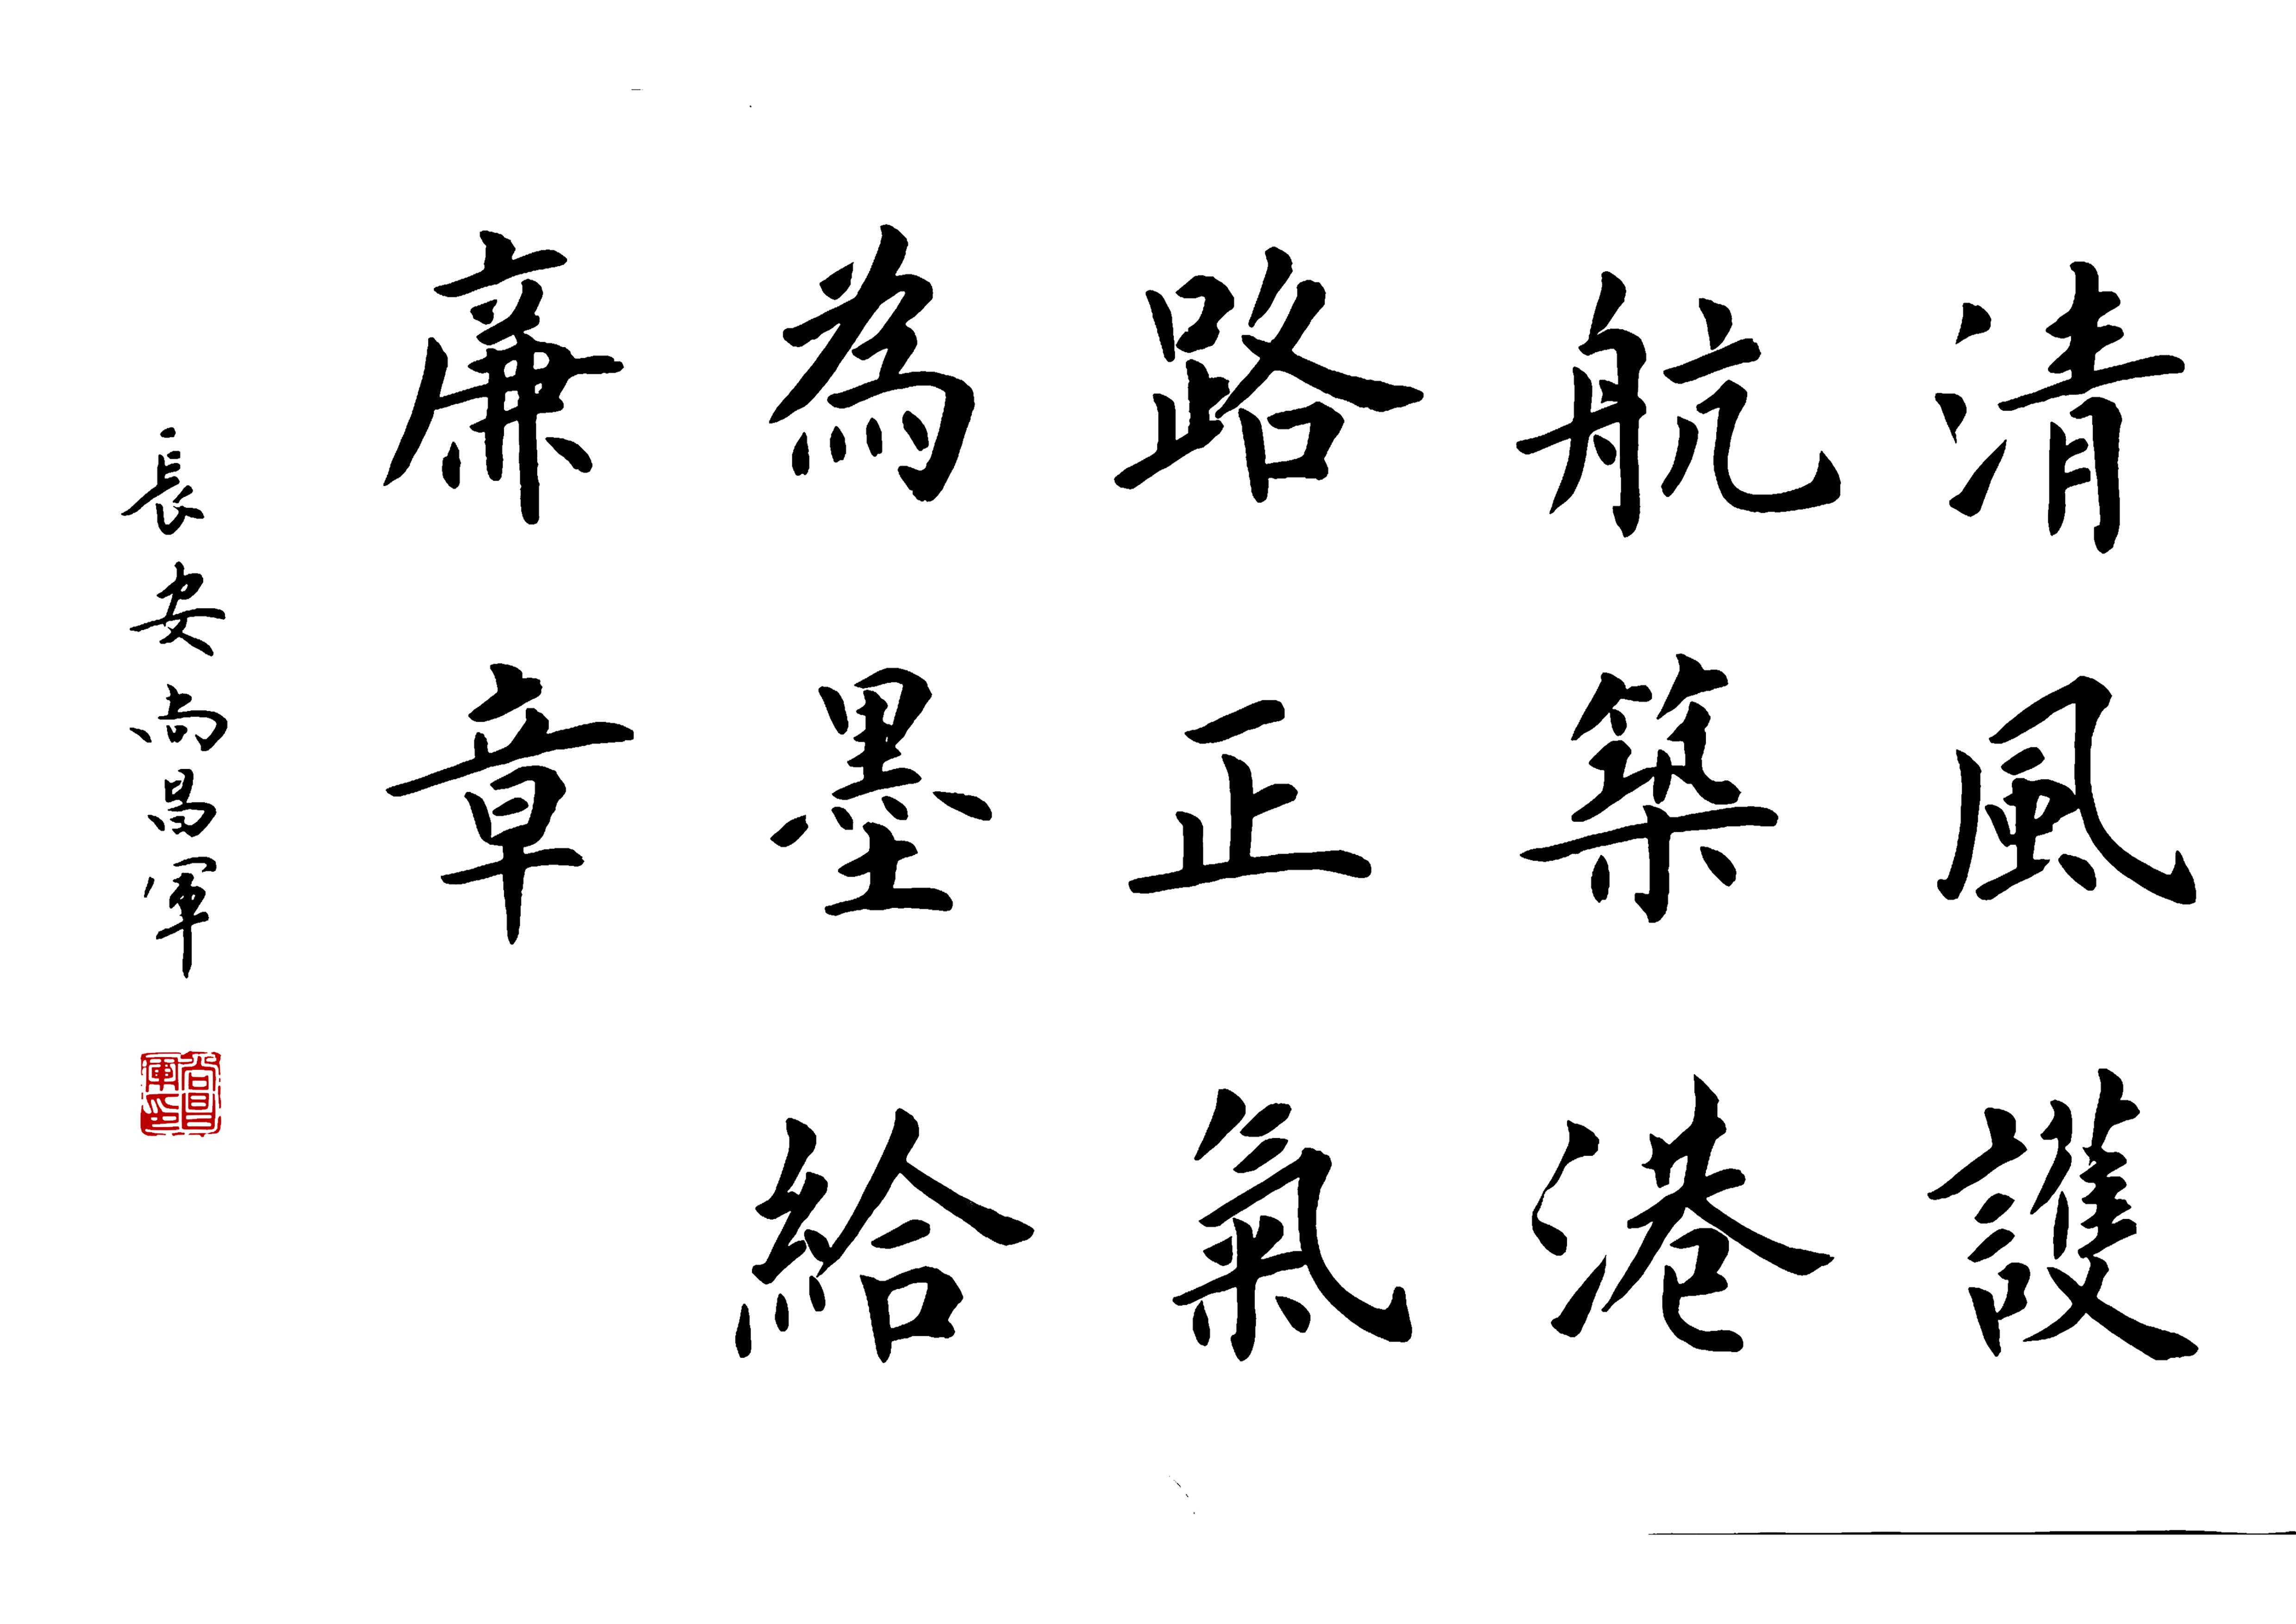 清風護
航築港
路正氣
為墨給
廉章
長安尚昌軍
尚昌軍印